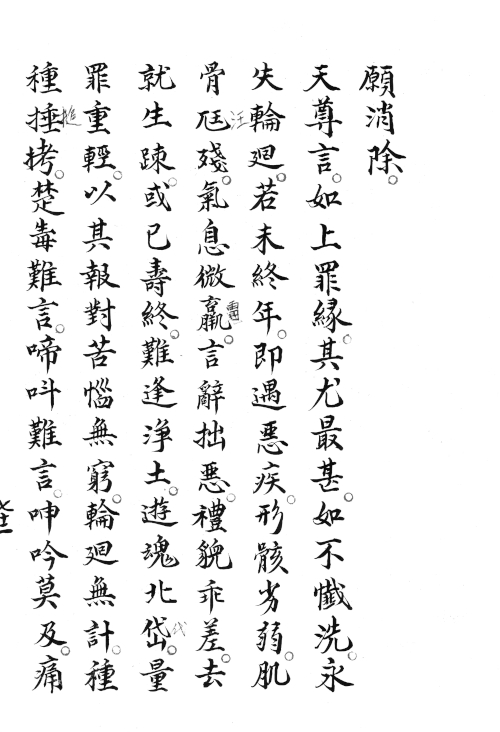 願消除。
天尊言。如上罪緣。其尤最甚。如不懺洗。永
失輪廻。若未終年。即遇惡疾。形骸劣弱。肌
骨尫汪殘。氣息微羸雷。言辭拙惡。禮貌乖差。去
就生踈。或已壽終。難逢淨土。遊魂北岱代。量
罪重輕。以其報對。苦惱無窮。輪廻無計。種
種捶搥拷。楚毒難言。啼呌難言。呻吟莫及。痛